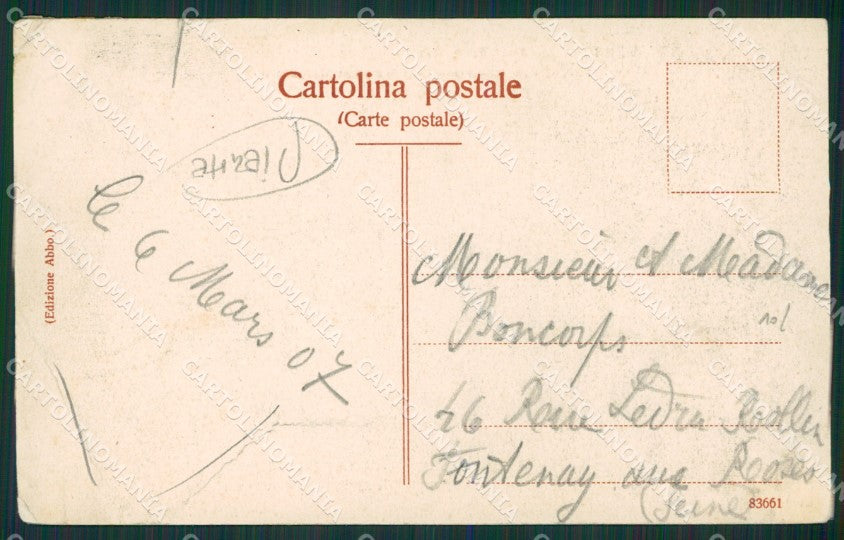 Cartolina postale
(Carte postale)
(Edizione Abbo.)
le 6 Mars 07
Monsieur et Madame
Boncorps
26 Rue Ledru Rollin
Fontenay aux Roses
(Seine)
83661
CARTOLINOMANIA